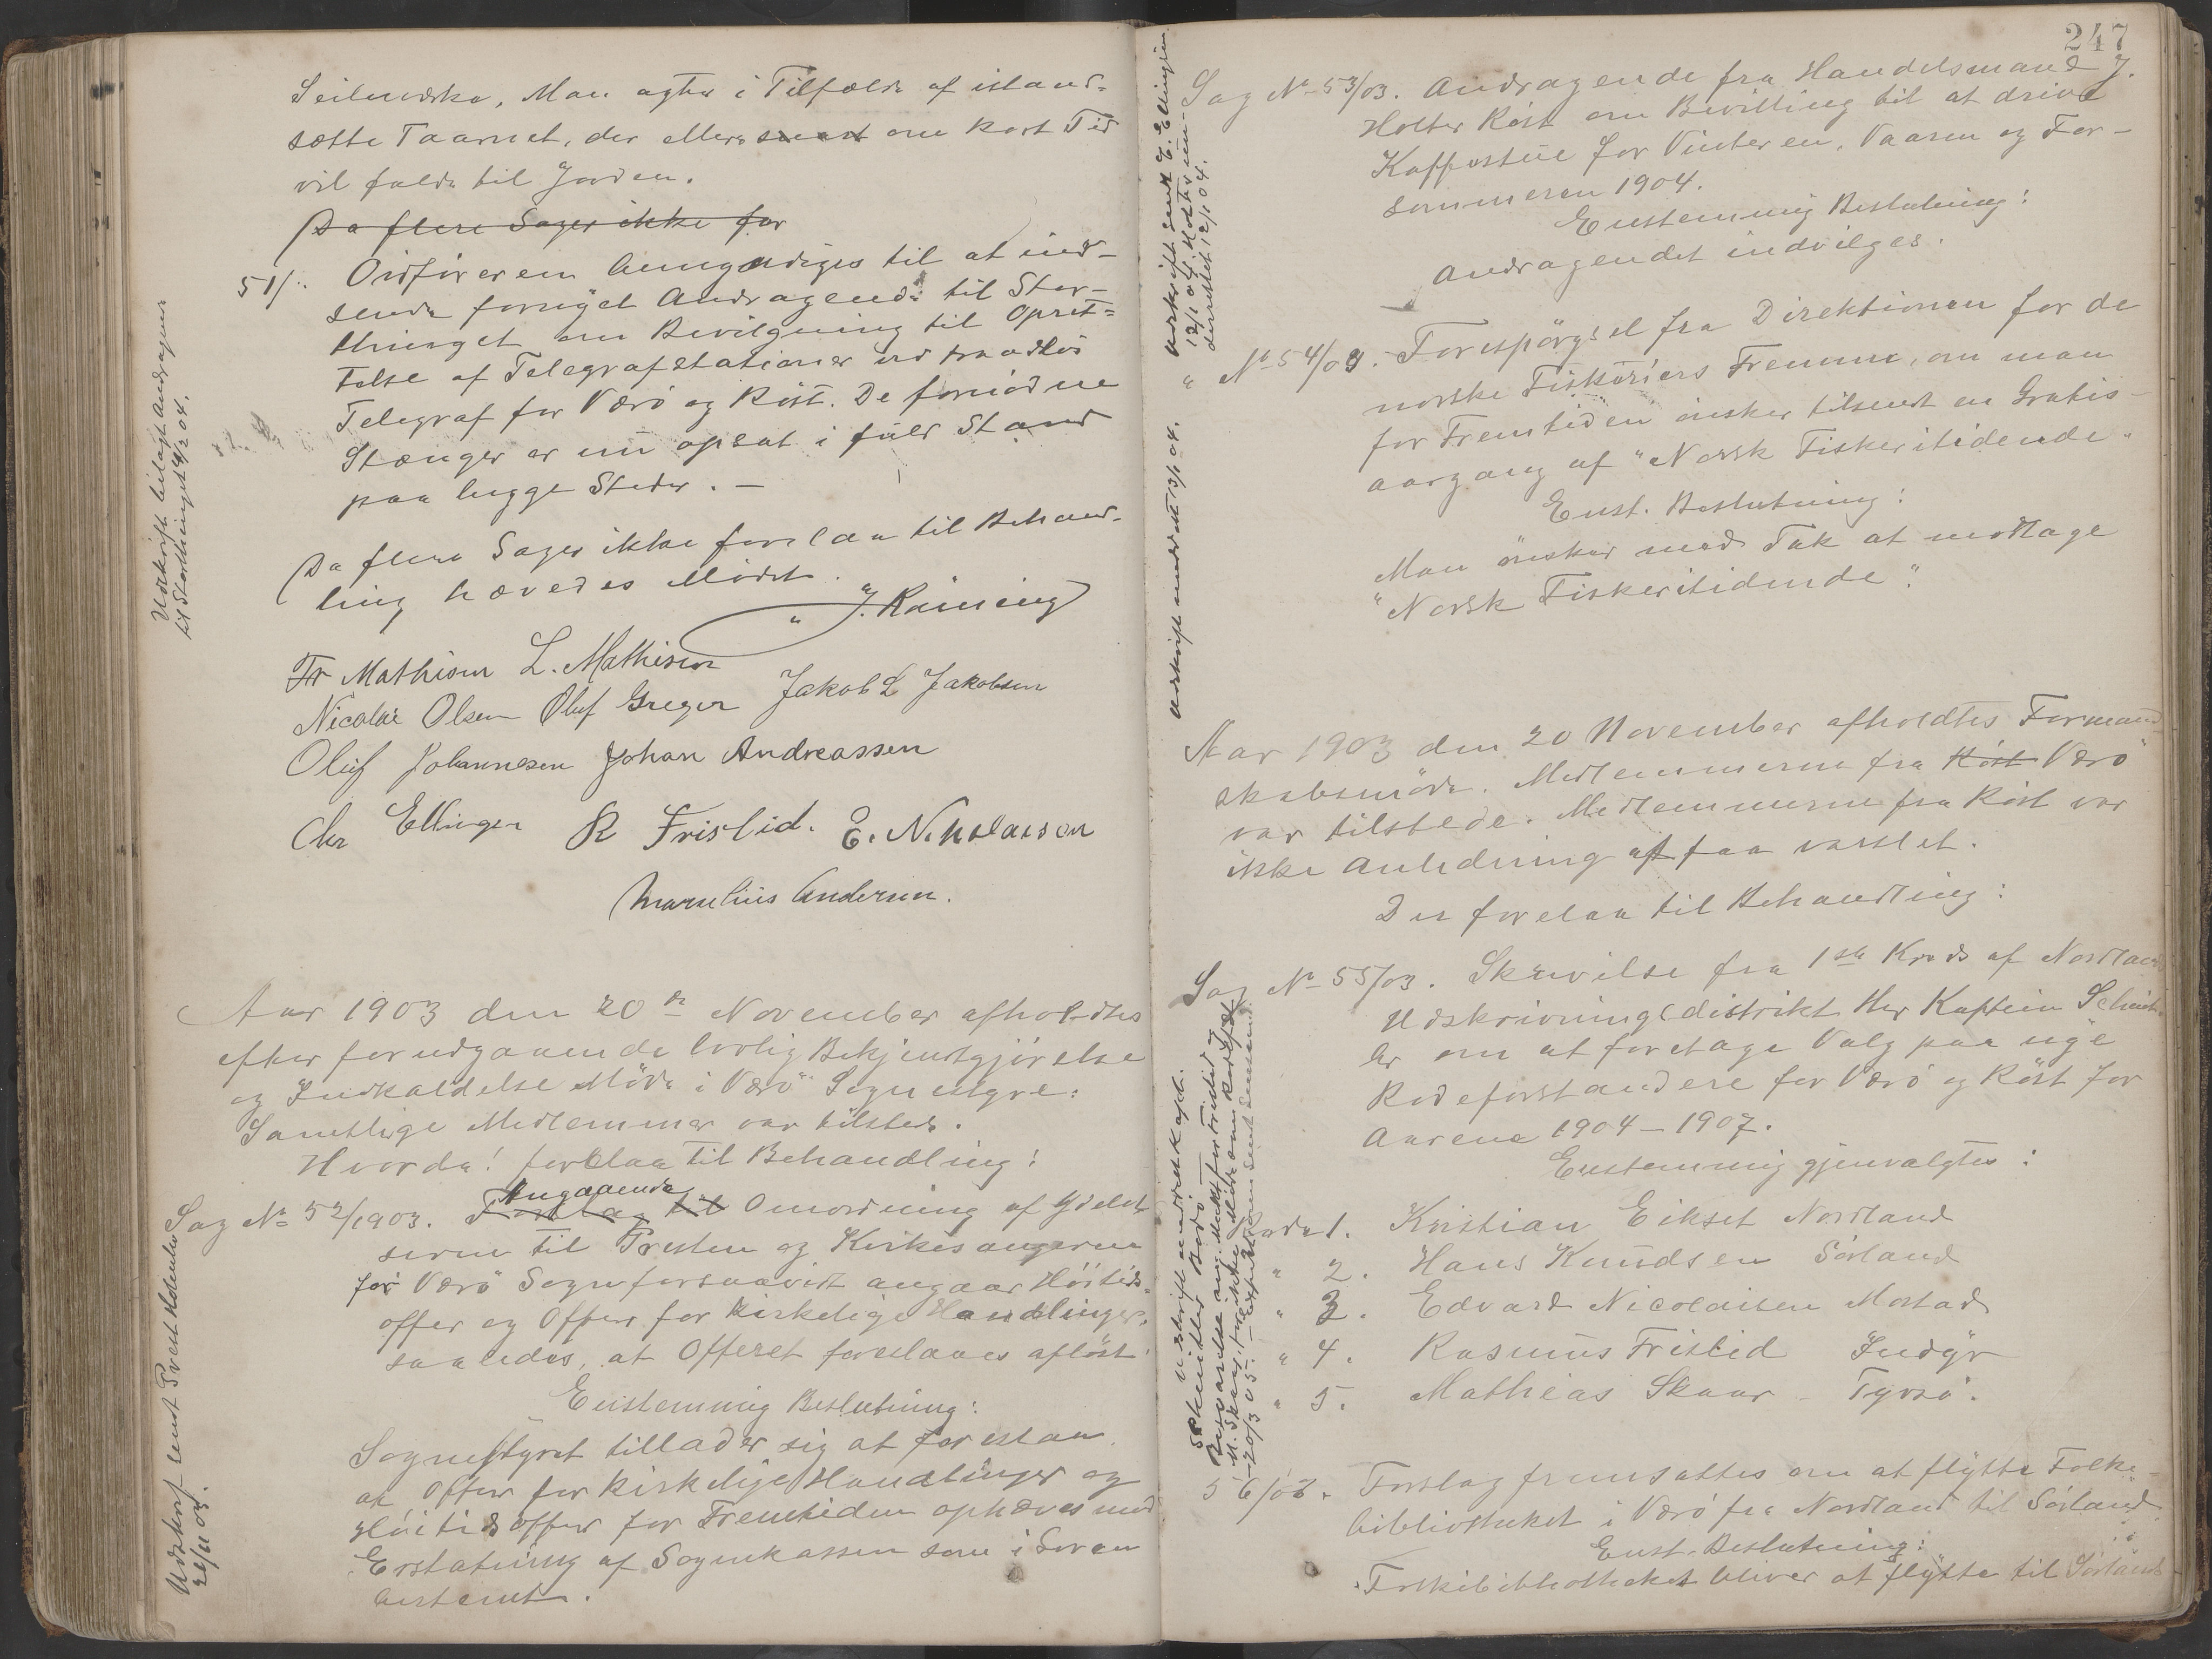 Seilmærke, Man agter i Tilfælde af istand-
sætte Taarnet, der ellers snart om kort Tid
vil falde til Jorden.
Da flere Sager ikke for
51/. Ordføreren bemyndiges til at ind-
sende fornyet Andragende til Stor-
thinget om Bevilgning til Opret-
telse af Telegrafstationer ved traadløs
Telegraf for Værö og Röst. De fornödne
Stænger er nu opsat i fuld Stand
paa begge Steder. —
Da flere Sager ikke forelaa til Behand-
ling hævedes Mödet.
J. Räining
Fr Mathisen L. Mathisen
Nicolai Olsen Oluf Greger Jakob L Jakobsen
Oluf Johannesen Johan Andreassen
Chr Ellingsen R Fristid. E. Nikolaisen
Marselius Andersen.
Udskrift bilagt Andragende
til Storthinget 4/2 04.
Aar 1903 den 20de November afholdtes
efter forudgaaende lovlig Bekjendtgjörelse
og Indkaldelse Möde i Værö Sognestyre.
Samtlige Medlemmer var tilstede.
Hvorda! forelaa til Behandling:
Sag No 52/1903. Forslag til Angaaende Omordning af Ydel-
serne til Presten og Kirkesangeren
for Værö Sogn forsaavidt angaar Höitids-
offer og Offer for kirkelige Handlinger,
saaledes, at Offeret foreslaaes aflöst.
Enstemmig Beslutning:
Sognestyret tillader sig at foreslaa
at Offer for kirkelige Handlinger og
Höitidsoffer for Fremtiden ophæves mod
Erstatning af Sognekassen som i Loven
bestemt.
Udskrift sendt Provst
22/11 03.
247
Sag No 53/03. Andragende fra Handelsmand J.
Holter Röst om Bevilling til at drive
Kaffestue for Vinteren, Vaaren og For-
sommeren 1904.
Enstemmig Beslutning:
Andragendet indvilges.
Udskrift sendt E. Ellingsen
12/1 04. Holter un-
derrettet 12/1 04.
" No 54/03. Forespörgsel fra Direktionen for de
norske Fiskeriers Fremme, om man
for Fremtiden önsker tilsendt en Gratis-
aargang af "Norsk Fiskeritidende".
Enst. Beslutning:
Man önsker med Tak at modtage
"Norsk Fiskeritidende".
Udskrift meddelt 13/1 04.
Aar 1903 den 20 November afholdtes Formand
skabsmöde. Medlemmerne fra Röst Værö
var tilstede. Medlemmerne fra Röst var
ikke Anledning at faa varslet.
Der forelaa til Behandling:
Sag No 55/03. Skrivelse fra 1ste Kreds af Nordlands
Udskrivningsdistrikt Her Kaptein Schnit-
ler om at foretage Valg paa nye
Rodeforstandere for Værö og Röst for
Aarene 1904–1907.
Enstemmig gjenvalgtes:
Rode 1. Kristian Eikset Nordland
" 2. Hans Knudsen Sörland
" 3. Edvard Nicolaisen Mostad
" 4. Rasmus Fristid Indyr
" 5. Mathias Skaar - Tyvsö.
Udskrift meddelt Kapt.
Schnitler Bodö
56/03. Forslag fremsattes om at flytte Folke-
bibliotheket i Værö fra Nordland til Sörland.
Enst. Beslutning:
Folkebibliotheket bliver at flytte til Sörland